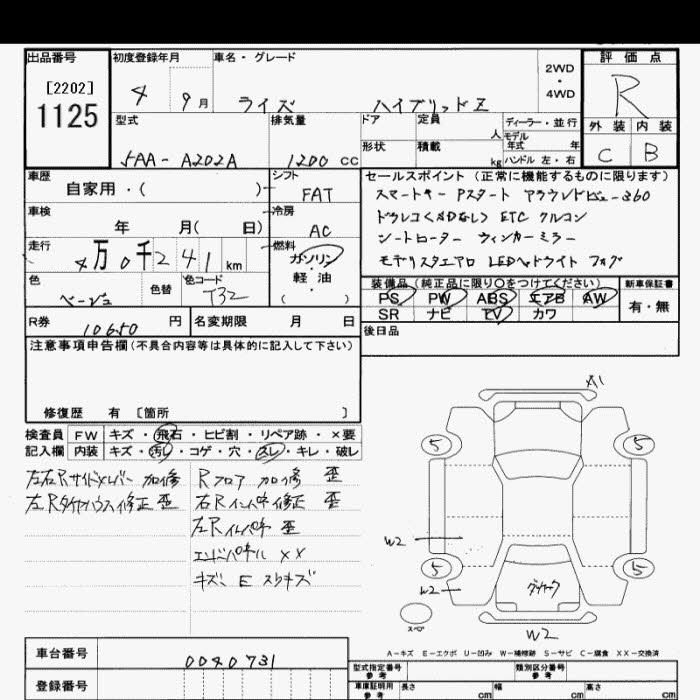 出品番号 初度登録年月 車名・グレード 2WD・4WD 評価点
[2202] 1125 4 9月 ライズ ハイブリッドZ R
型式 排気量 ドア 定員 人 ディーラー・並行 外装 内装
5AA-A202A 1200cc 形状 積載 kg モデル年式 年 ハンドル 左・右 C B
車歴 自家用・( ) シフト FAT セールスポイント(正常に機能するものに限ります)
スマートキー Pスタート アラウンドビュー360
車検 年 月( 日) 冷房 AC
ドラレコ<SDなし> ETC クルコン
走行 4万0千241km 燃料 ガソリン・軽油・( )
シートヒーター ウィンカーミラー
モデリスタエアロ LEDヘッドライト フォグ
色 ベージュ 色替 色コード T32
装備品(純正品に限り○をつけてください) 新車保証書
PS PW ABS エアB AW 有・無
SR ナビ TV カワ
R券 10650円 名変期限 月 日 後日品
注意事項申告欄(不具合内容等は具体的に記入して下さい)
修復歴 有 〔箇所 〕
検査員 FW キズ・飛石・ヒビ割・リペア跡・×要
記入欄 内装 キズ・汚れ・コゲ・穴・スレ・キレ・破レ
左右Rサイドメンバー 加修 歪
左Rタイヤハウス修正 歪
Rフロア 加修 歪
右Rインパネ修正 歪
左Rインパネ 歪
エンドパネル XX
キズ、E スリキズ
A1
5 5
W2
5 5
W2
スペア
W2
A-キズ E-エクボ U-凹み W-補修跡 S-サビ C-腐食 XX-交換済
車台番号 0040731
型式指定番号 参考 類別区分番号 参考
登録番号
車庫証明用 参考 長さ cm 幅 cm 高さ cm